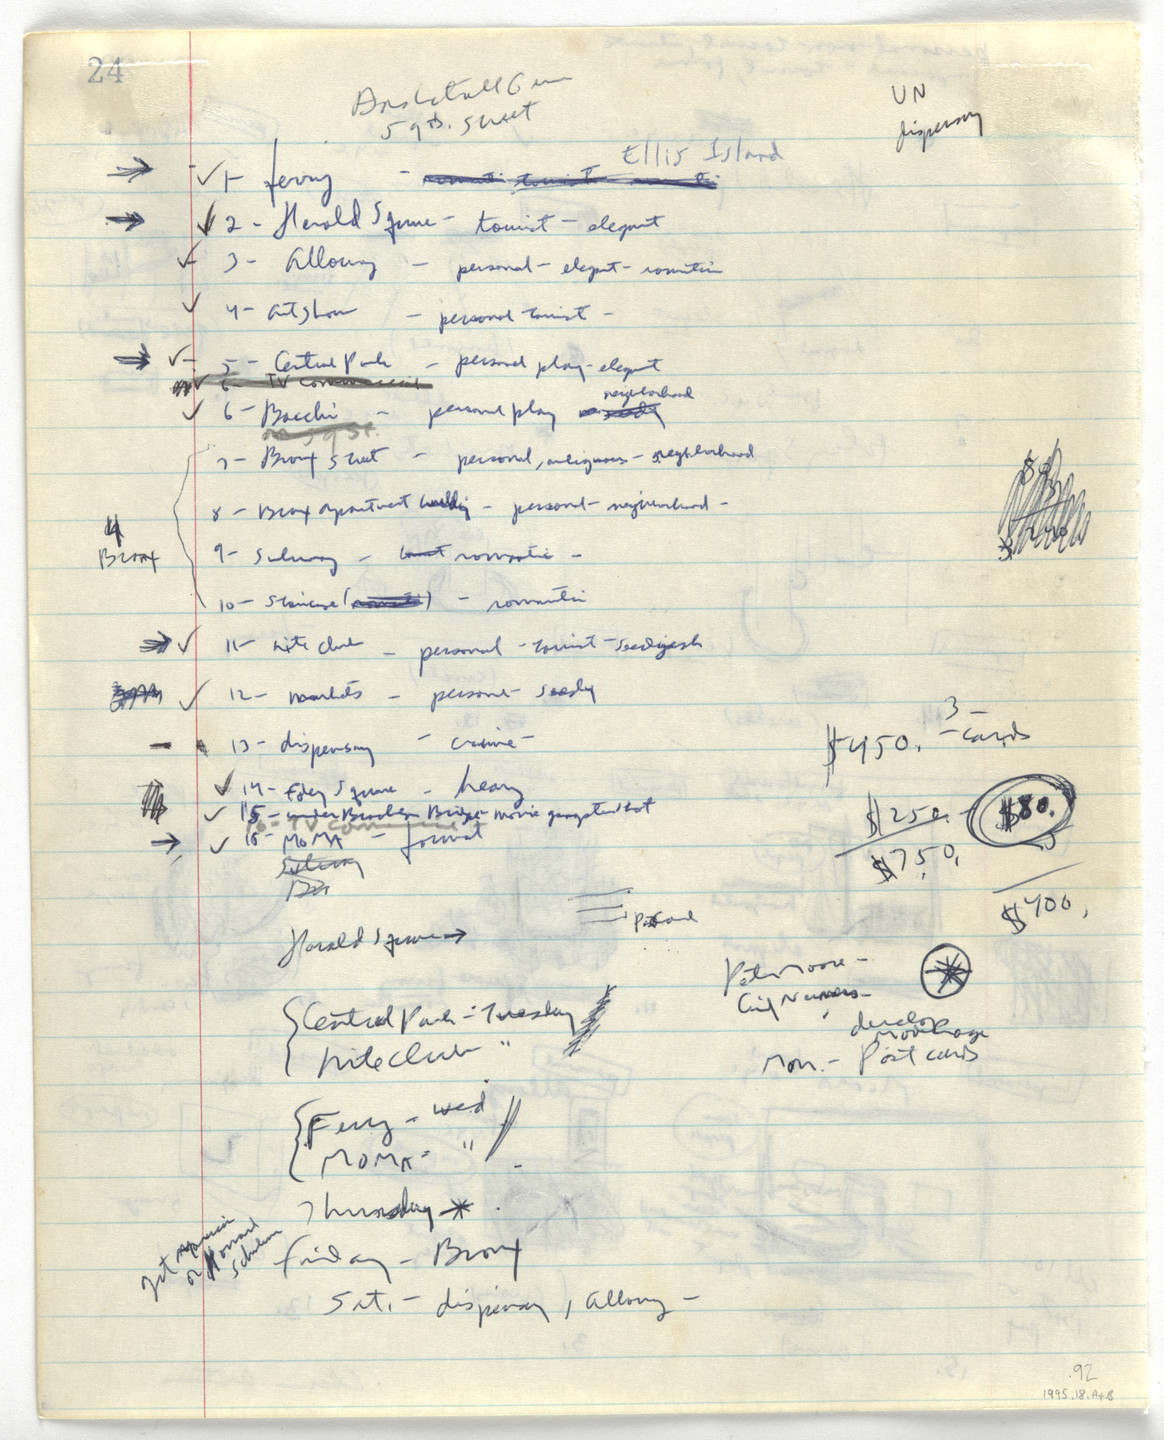 24
Basketball Game
59th. Street
UN
dispensary
Ellis Island
1- ferry -
2- Herald Square - tourist - elegant
3- Alloway - personal - elegant - romantic
4- art show - personal tourist -
5- Central Park - personal play - elegant
6- TV commercial
neighborhood
6- Bocchi - personal play seedy
on 59 St.
7- Bronx street - personal, ambiguous - neighborhood
8- Bronx apartment building - personal - neighborhood -
4
Bronx
9- Subway - romantic -
10- Staircase ( ) - romantic
11- nite club - personal - tourist - seedyish
12- markets - personal - seedy
13- dispensary - crime -
14- Foley Square - heavy
15- under Brooklyn Bridge - movie gangster
16- TV commercial
16- MoMA - formal
Subway
3 -
$450. - cards
$250. - $80.
5
$750.
$400.
Herald Square →
Postcard
Pete Moore -
develop
Mon. - Post cards
Central Park - Tuesday
Nite Club "
Ferry - Wed
MOMA - "
Thursday *
Get
or
Friday - Bronx
Sat. - dispensary, Alloway -
.92
1995.18.A+B